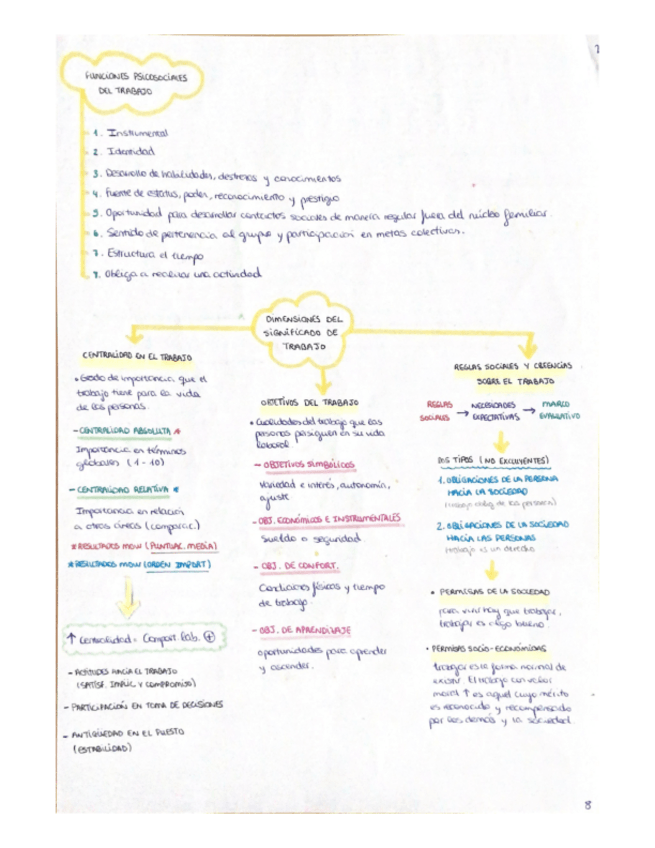 FUNCIONES PSICOSOCIALES
DEL TRABAJO
1. Instrumental
2. Identidad
3. Desarrollo de habilidades, destrezas y conocimientos
4. Fuente de estatus, poder, reconocimiento y prestigio
5. Oportunidad para desarrollar contactos sociales de manera regular fuera del núcleo familiar.
6. Sentido de pertenencia al grupo y participación en metas colectivas.
7. Estructura el tiempo
7. Obliga a realizar una actividad
DIMENSIONES DEL
SIGNIFICADO DE
TRABAJO
CENTRALIDAD EN EL TRABAJO
• Grado de importancia que el
trabajo tiene para la vida
de las personas.
- CENTRALIDAD ABSOLUTA *
Importancia en términos
globales (1-10)
- CENTRALIDAD RELATIVA *
Importancia en relación
a otras áreas (comparac.)
* RESULTADOS MOW (PUNTUAC. MEDIA)
* RESULTADOS MOW (ORDEN IMPORT)
↑ Centralidad = Comport. lab. ⊕
- ACTITUDES HACIA EL TRABAJO
(SATISF. IMPLIC Y COMPROMISO)
- PARTICIPACIÓN EN TOMA DE DECISIONES
- ANTIGÜEDAD EN EL PUESTO
(ESTABILIDAD)
OBJETIVOS DEL TRABAJO
• Cualidades del trabajo que las
personas persiguen en su vida
laboral
- OBJETIVOS SIMBÓLICOS
Variedad e interés, autonomía,
ajuste
- OBJ. ECONÓMICOS E INSTRUMENTALES
Sueldo o seguridad
- OBJ. DE CONFORT.
Condiciones físicas y tiempo
de trabajo.
- OBJ. DE APRENDIZAJE
oportunidades para aprender
y ascender.
REGLAS SOCIALES Y CREENCIAS
SOBRE EL TRABAJO
REGLAS SOCIALES → NECESIDADES EXPECTATIVAS → MARCO EVALUATIVO
DOS TIPOS (NO EXCLUYENTES)
1. OBLIGACIONES DE LA PERSONA
HACIA LA SOCIEDAD
(trabajo oblig. de las personas)
2. OBLIGACIONES DE LA SOCIEDAD
HACIA LAS PERSONAS
trabajo es un derecho
• PERMISAS DE LA SOCIEDAD
para vivir hay que trabajar,
trabajar es algo bueno.
• PERMISAS SOCIO-ECONÓMICAS
trabajar es la forma normal de
existir. El trabajo con valor
moral ↑ es aquel cuyo mérito
es reconocido y recompensado
por los demás y la sociedad.
8